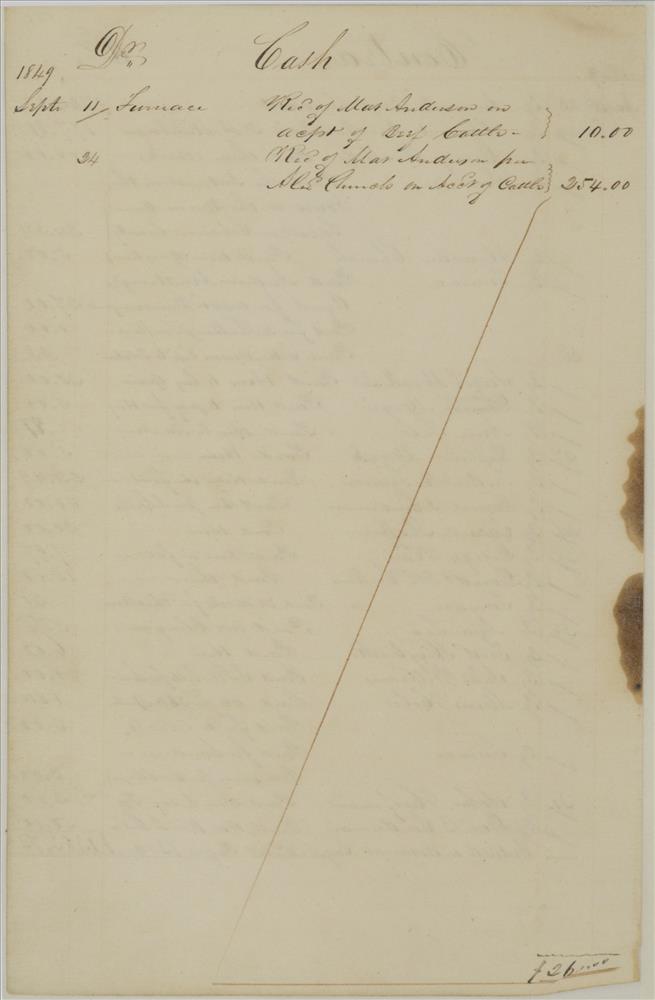 Dr. Cash
1849
Septr 11 Furnace Recd of Mat Anderson on
acpt of Beef Cattle - 10.00
24 Recd of Mat Anderson per
Alexr Church on Acct of Cattle 254.00